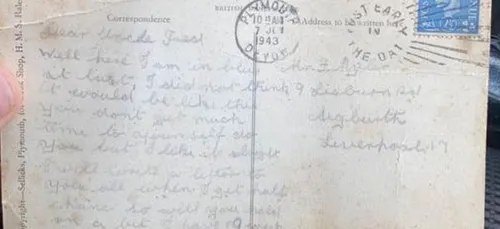 Correspondence
BRITISH
Address to be written here
PLYMOUTH
10 AM
7 JU
1943
DEVON
POST EARLY
IN
THE DAY
Dear Uncle Fred
Well here I am in blue
at last, I did not think
it would be like this
you don't get much
time to yourself do
you but I like it alright
I will write a letter to
you all when I get half
a chance so will you
on a but I have
Mr F.
9 Lisburn Rd
Aigburth
Liverpool 17
Copyright—Sellicks, Plymouth, Shop, H. M. S.